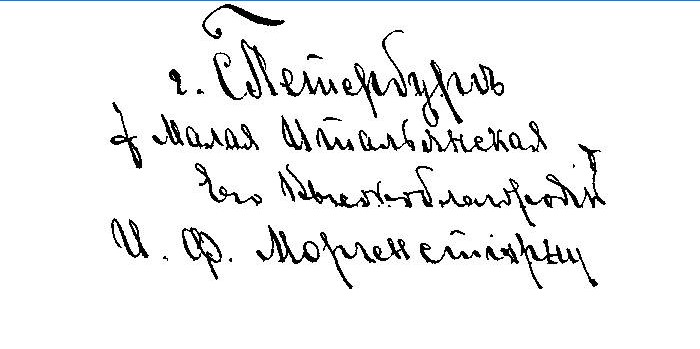 г. СПетербургъ
Малая Итальянская
Его Высокоблагородію
И. Ф. Моргенстіэрну